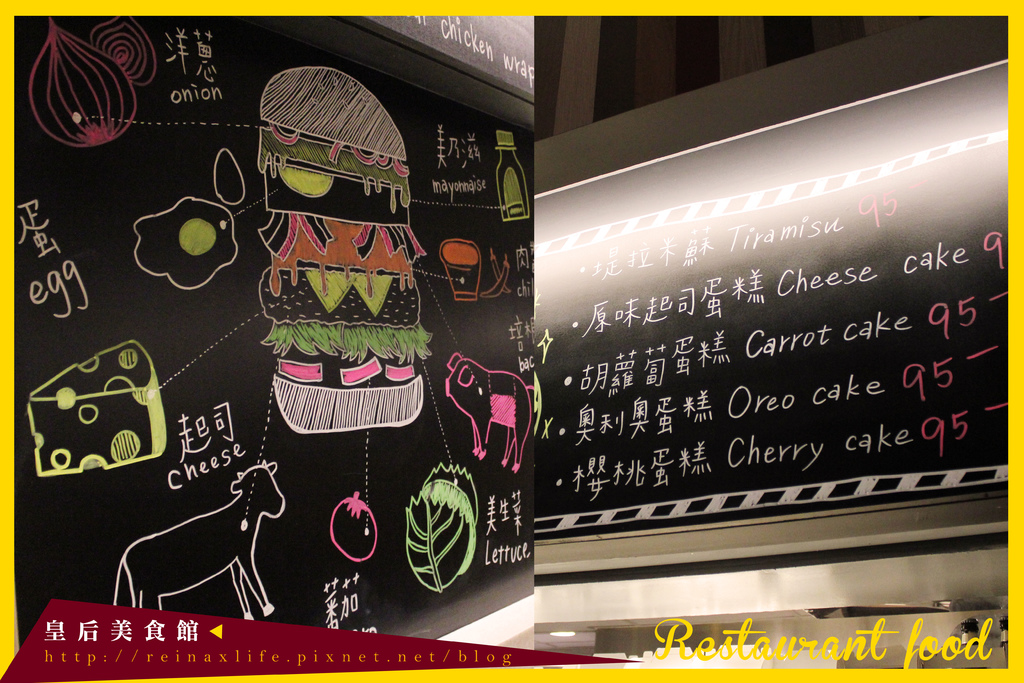 chicken wrap
洋蔥
onion
美乃滋
mayonnaise
蛋
egg
起司
cheese
美生菜
Lettuce
蕃茄
堤拉米蘇 Tiramisu 95
原味起司蛋糕 Cheese cake
胡蘿蔔蛋糕 Carrot cake 95
奧利奧蛋糕 Oreo cake 95
櫻桃蛋糕 Cherry cake 95
皇后美食館
http://reinaxlife.pixnet.net/blog
Restaurant food